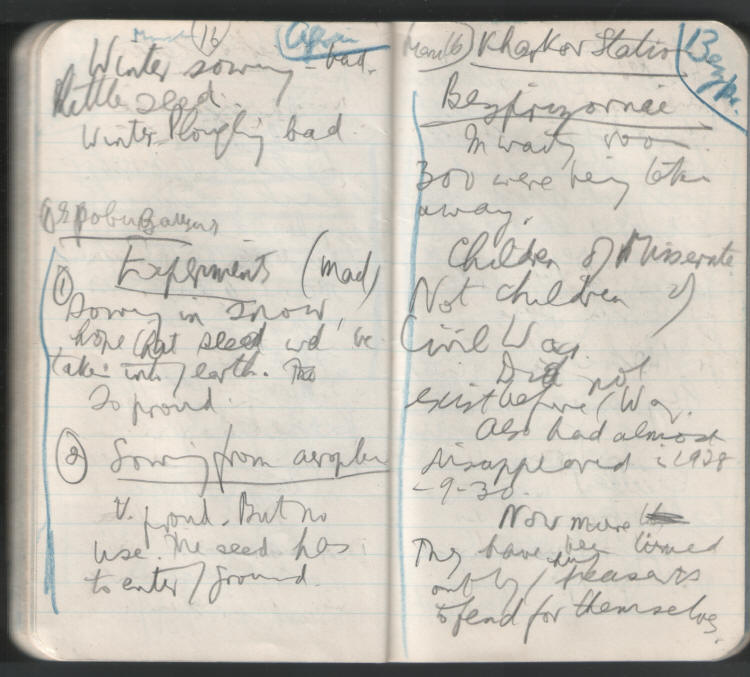 16
Winter sowing - bad.
Little seed.
Winter Ploughing bad
Experiments (Mad)
① Sowing in snow,
hope that seed wd be
taken into / earth.
So proud.
② Sowing from aeroplane
V. proud. But no
use. The seed has
to enter / ground.
Kharkov Station
Bezpr.
Besprizornae
In waiting room
300 were being taken
away.
Children of
Not children of /
Civil War.
Did not
exist before / War.
Also had almost
disappeared in 1928
-9-30.
Now more
They have been turned
out by / peasants
to fend for themselves.